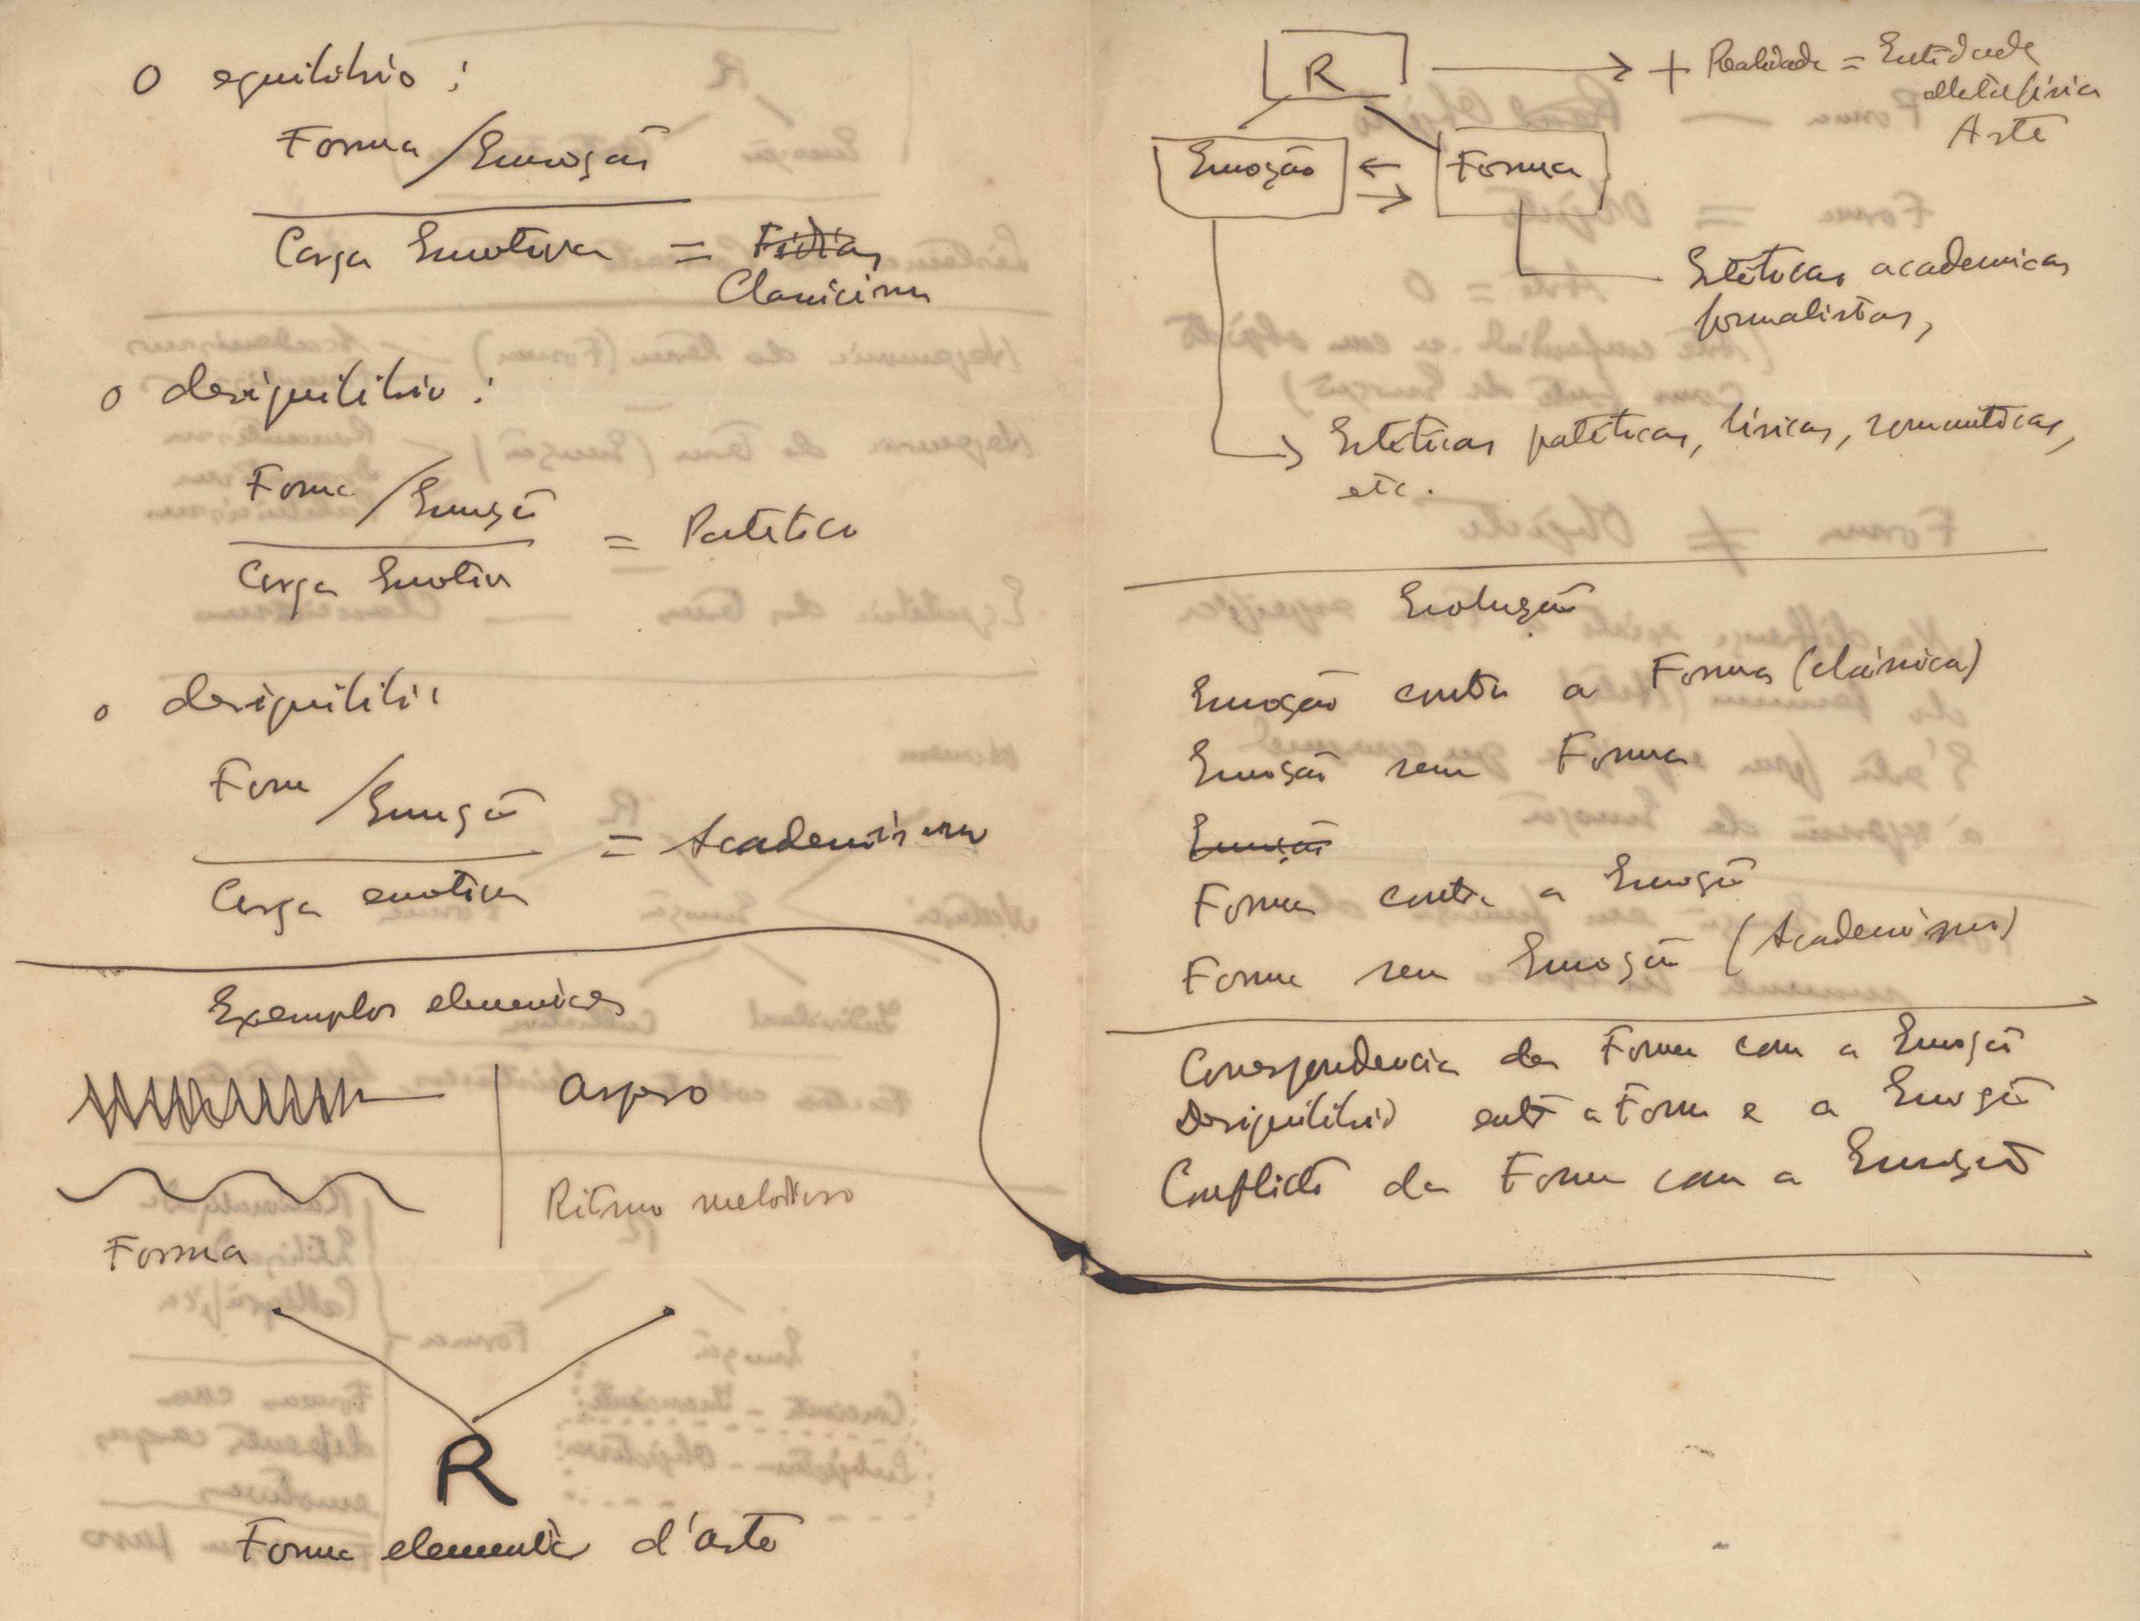 O equilibrio :
Forma / Emoção
Carga Emotiva = Fidias
Classicismo
o desiquilibrio :
Forma / Emoção
Carga Emotiva = Patetico
o desiquilibrio
Forma / Emoção
Carga emotiva = Academismo
Exemplos elementares
Aspero
Ritmo melodioso
Forma
R
Forma elementar d'arte
R → + Realidade = Entidade
Metafísica
Arte
Emoção ← → Forma
Estéticas academicas
formalistas,
Estéticas patéticas, líricas, romanticas,
etc.
Evolução
Emoção contra a Forma (clássica)
Emoção sem Forma
Emoção
Forma contra a Emoção
Forma sem Emoção (Academismo)
Correspondencia da Forma com a Emoção
Desiquilibrio entre a Forma e a Emoção
Conflicto da Forma com a Emoção